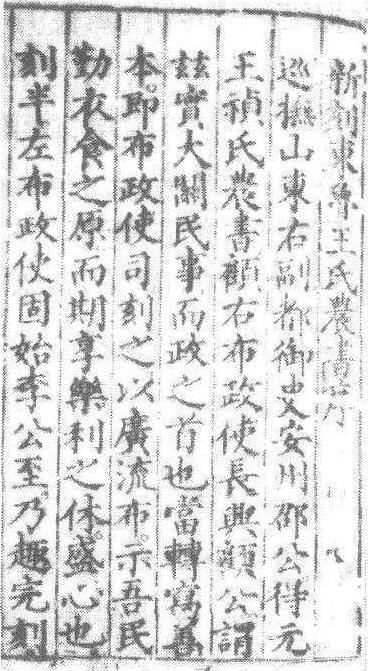 新刻東魯王氏農書序
巡撫山東右副都御史安州邵公得元
王禎氏農書顧右布政使長興顧公謂
茲實大關民事而政之首也當轉寫善
本即布政使司刻之以廣流布示吾民
勤衣食之原而期享樂利之休盛心也
刻半左布政使固始李公至乃趣完刻